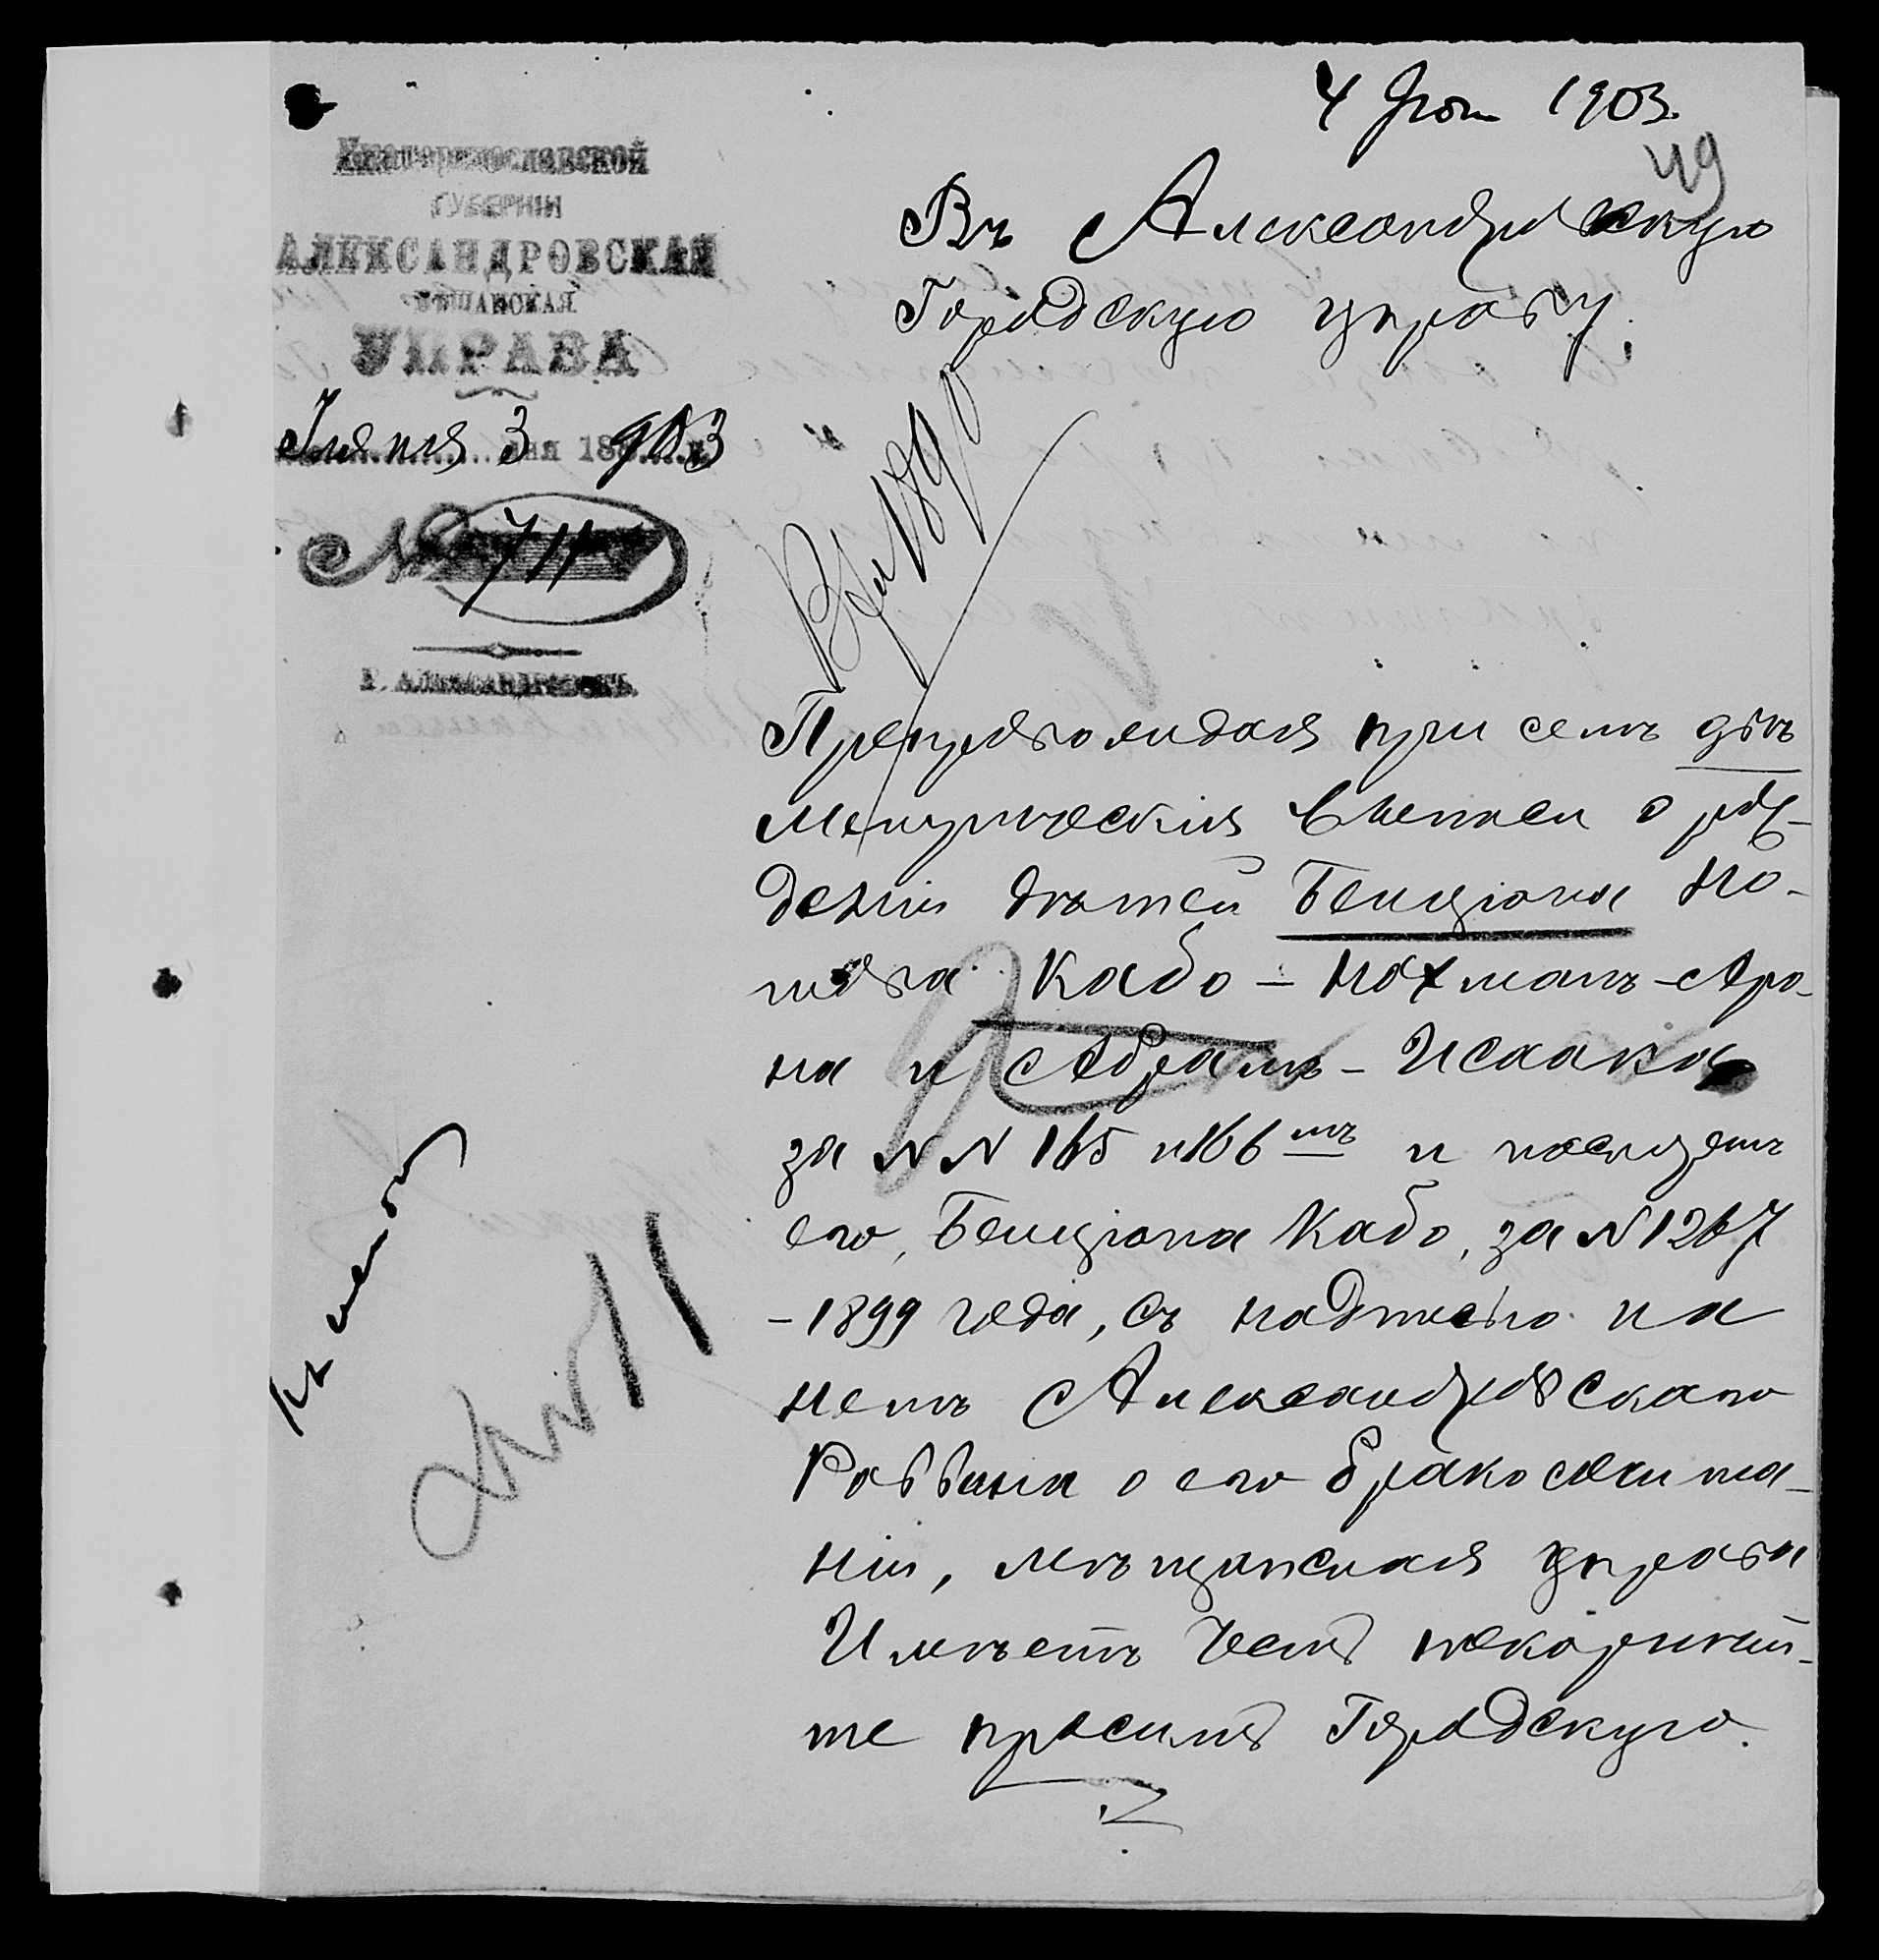 4 Июн 1903.
49
Екатеринославской
ГУБЕРНІИ
АЛЕКСАНДРОВСКАЯ
МѢЩАНСКАЯ
УПРАВА
Іюня 3 дня 18 903
№ 711
Г. АЛЕКСАНДРОВСКЪ
Въ Александровскую
Городскую управу.
Препровождая при семъ двѣ
Метрическія выписи о рож-
деніи дѣтей Бенціона Но-
това Кабо – Нахманъ-Аро-
на и Абрамъ-Исаака
за NN 165 и 166 мъ и посѣмъ
его, Бенціона Кабо, за N 1267
- 1899 года, съ надписью на
немъ Александровскаго
Раввина о его бракосочита-
ніи, мѣщанская управа
Имѣетъ честь покорнѣй-
ше просить Городскую